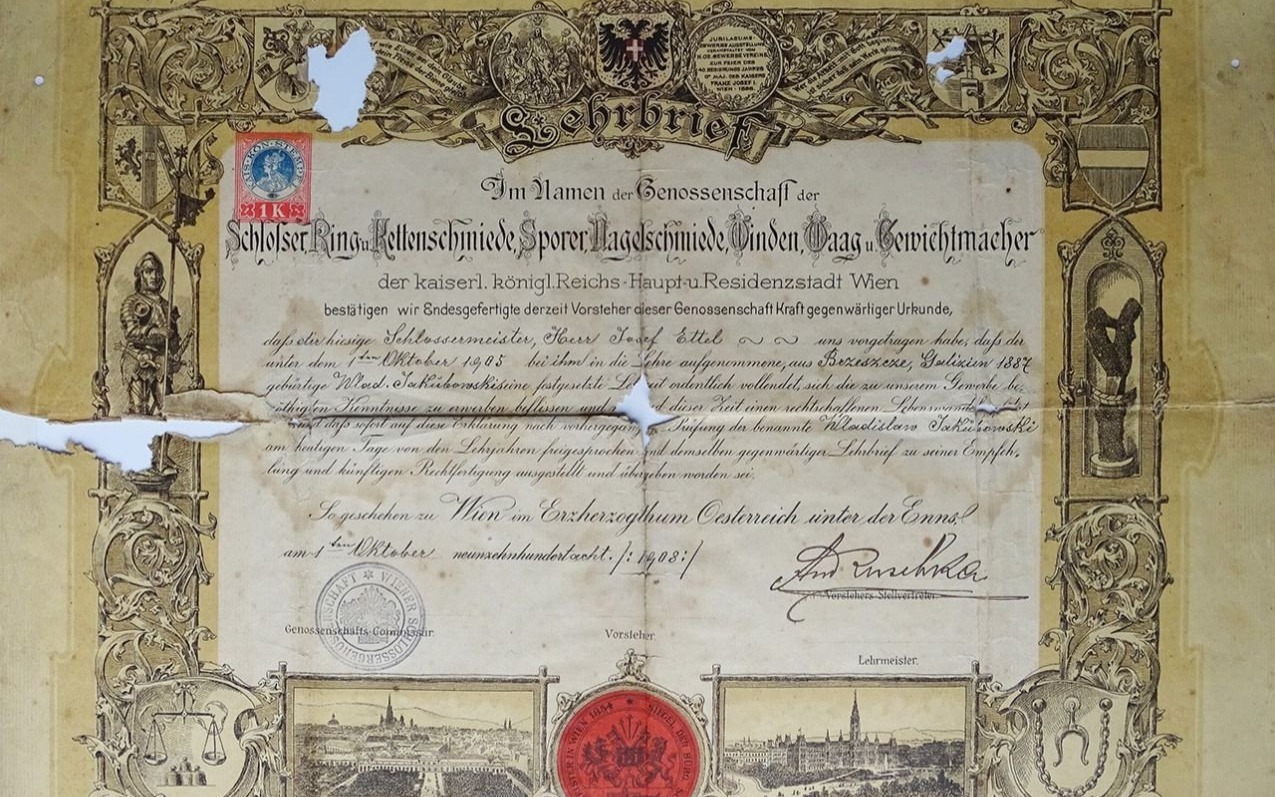 JUBILÄUMS-
GEWERBE AUSSTELLUNG
VERANSTALTET VOM
N. OE. GEWERBE VEREINE
ZUR FEIER DES
40. REGIERUNGS JAHRES
Sr MAJ. DES KAISERS
FRANZ JOSEF I.
WIEN · 1888.
Lehrbrief
KAIS·KÖN·STEMPEL
1 K
Im Namen der Genossenschaft der
Schlosser, Ring u. Kettenschmiede, Sporer, Nagelschmiede, Winden, Waag u. Gewichtmacher
der kaiserl. königl. Reichs-Haupt-u. Residenzstadt Wien
bestätigen wir Endesgefertigte derzeit Vorsteher dieser Genossenschaft Kraft gegenwärtiger Urkunde,
daß der hiesige Schlossermeister, Herr Josef Ettel ~ ~ uns vorgetragen habe, daß der
unter dem 1ten Oktober 1905 bei ihm in die Lehre aufgenommene, aus Bezieszcze, Galizien 1887
gebürtige Wlad. Jakubowski seine festgesetzte ordentlich vollendet, sich die zu unserem Gewerbe be-
nöthigten Kenntnisse zu erwerben beflissen und dieser Zeit einen rechtschaffenen
und daß sofort auf diese Erklärung nach vorhergegangener Prüfung der benannte Wladislaw Jakubowski
am heutigen Tage von den Lehrjahren freigesprochen und demselben gegenwärtiger Lehrbrief zu seiner Empfeh-
lung und künftigen Rechtfertigung ausgestellt und übergeben worden sei.
So geschehen zu Wien im Erzherzogthum Oesterreich unter der Enns.
am 1ten Oktober neunzehnhundertacht. /: 1908 :/
Vorstehers Stellvertreter.
GENOSSENSCHAFT * WIENER SCHLOSSER
Genossenschafts-Commissär.
Vorsteher.
Lehrmeister.
SIEGEL DER
IN WIEN 1854